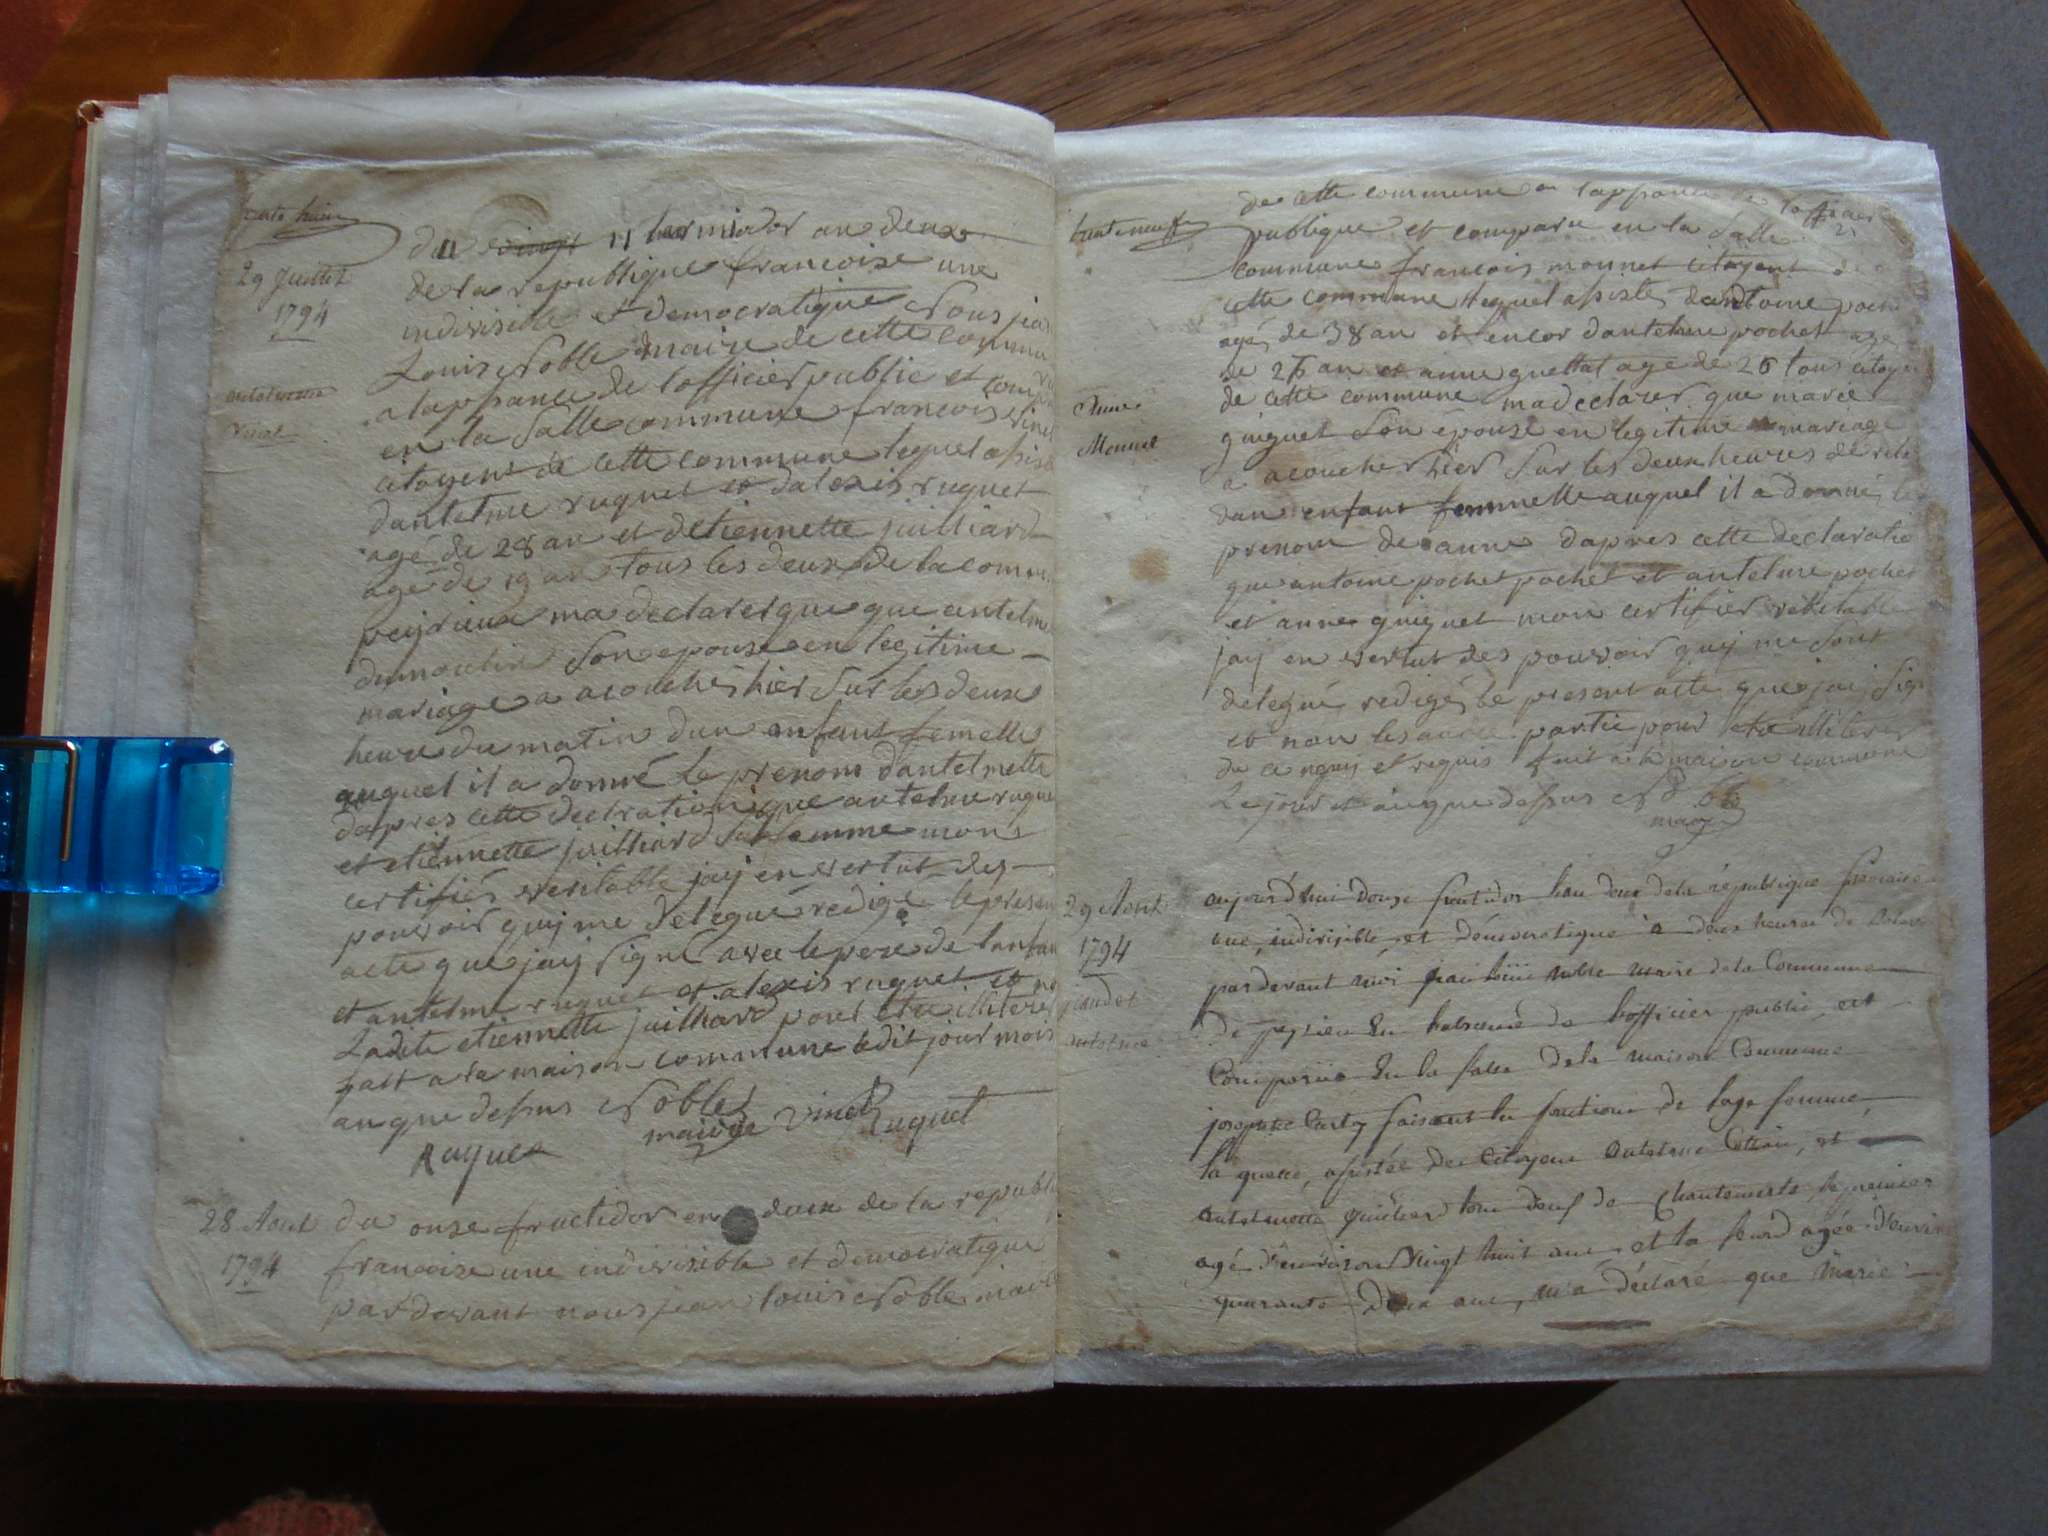 trente huit
du vingt 11 termidor an deux
29 Juillet
de la republique francoise une
1794
indivisible et democratique Nous jean
Louis Noble maire de cette commu
antelmette
a lapsance de lofficier public et compa
vinet
en la salle commune francois vinet
citoyent de cette commune lequel asiste
dantelme ruguet et dalexis ruguet
agé de 28 an et detiennette juilliard
agé de 19 an tous les deux de la comm
peyrieux ma declarer que que antelme
dumoulin son epouse en legitime
mariage a acouché hier sur les deux
heure du matin dun enfant femelle
auquel il a donné le prenom dantelmette
dapres cette declration que antelme rugue
et etiennette juilliard sa femme mont
certifiér veritable jaij en vertut des
pouvoir quij me delegué redigé le presen
acte que jaij signé avec le pere de lanfan
et antelme ruguet et alexis ruguet et no
Ladite etiennette juilliard pour etre illiteré
fait a la maison commune ledit jour mois
an que desus Noble vinet Ruguet
maire
Ruguet
28 Aout
du onse fructidor en deux de la republi
1794
francoise une indivisible et democratique
par devant nous jean louis Noble maire
de cette commune a lapsance de lofficier
21
trente neuf
publique et comparu en la salle
commune francois monnet citoyent de
cette commune lequel asisté dantoine poch
agé de 38 an et encor dantelme pochet agé
de 26 an et anne guettat agé de 26 tous citoye
Anne
de cette commune ma declarer que marie
Monnet
guiguet son épouse en legitime mariage
a acoucher hier sur les deux heures de rele
dun enfant femmelle auquel il a donné le
prenom de anne dapres cette declaratio
que antoine pochet pochet et antelme pochet
et anne guiguet mon certifier veritable
jaij en vertut des pouvoir quij me sont
delegué redigé le present acte que jai sig
et non les partie pour etre illiterer
de ce enquij et requis fait a la maison commune
Le jour et an que desus
maire
29 Aout
aujourd'hui douze fructidor lan deux dela république francaise
1794
une, indivisible, et démocratique à deux heures de
pardevant moi jean louis noble maire dela Commune
jaudet
de peyrieu En labsence de lofficier public, est
antelme
Comparüe En la salle dela maison Commune
josepte Carty faisant les fonctions de sage femme,
la quelle, asistée des Citoyens antelme Cottin, et
antelmette juilliard tous deuf de Chantemerle le premier
agé d'environ vingt huit ans, et la second agée d'envir
quarante deux ans, m'a déclaré que Marie